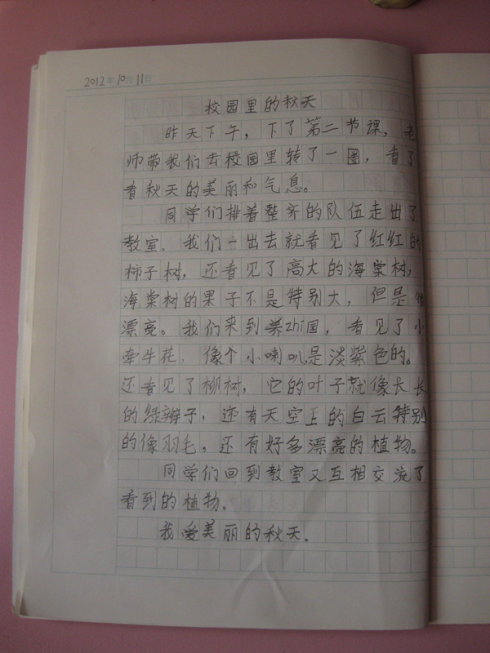 2012年10月11日
校园里的秋天
昨天下午，下了第二节课，老
师带我们去校园里转了一圈，看了
看秋天的美丽和气息。
同学们排着整齐的队伍走出了
教室，我们一出去就看见了红红的
柿子树，还看见了高大的海棠树，
海棠树的果子不是特别大，但是很
漂亮。我们来到养zhi园，看见了小
牵牛花，像个小喇叭，是淡紫色的。
还看见了柳树，它的叶子就像长长
的绿辫子，还有天空上的白云特别
的像羽毛，还有好多漂亮的植物。
同学们回到教室又互相交流了
看到的植物。
我爱美丽的秋天。